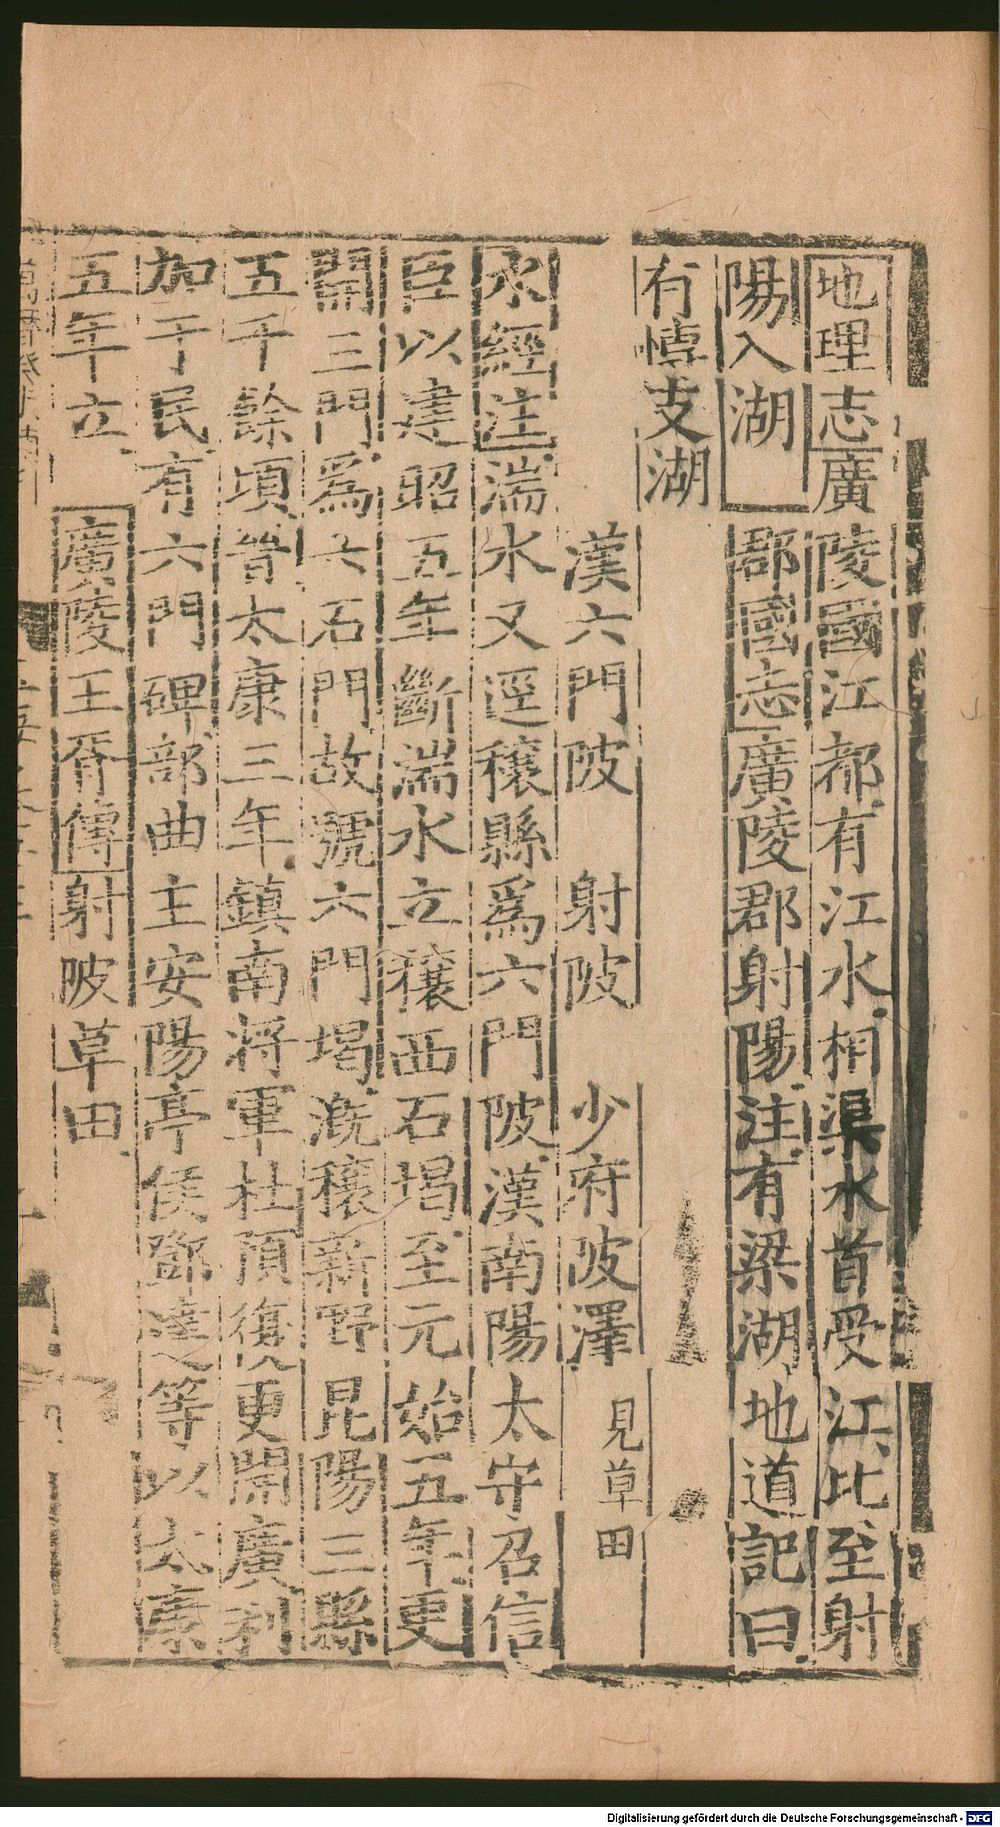 地理志廣陵國江都有江水柌渠水首受江北至射
陽入湖　郡國志廣陵郡射陽注有梁湖地道記曰
有博支湖
漢六門陂　射陂　少府陂澤 見草田
水經注湍水又逕穰縣爲六門陂漢南陽太守召信
臣以建昭五年斷湍水立穰西石堨至元始五年更
開三門爲六石門故號六門堨漑穰新野昆陽三縣
五千餘項晉太康三年鎮南將軍杜預復更開廣利
加于民有六門碑部曲主安陽亭侯鄧達等以太康
五年立　廣陵王胥傳射陂草田
Digitalisierung gefördert durch die Deutsche Forschungsgemeinschaft - DFG